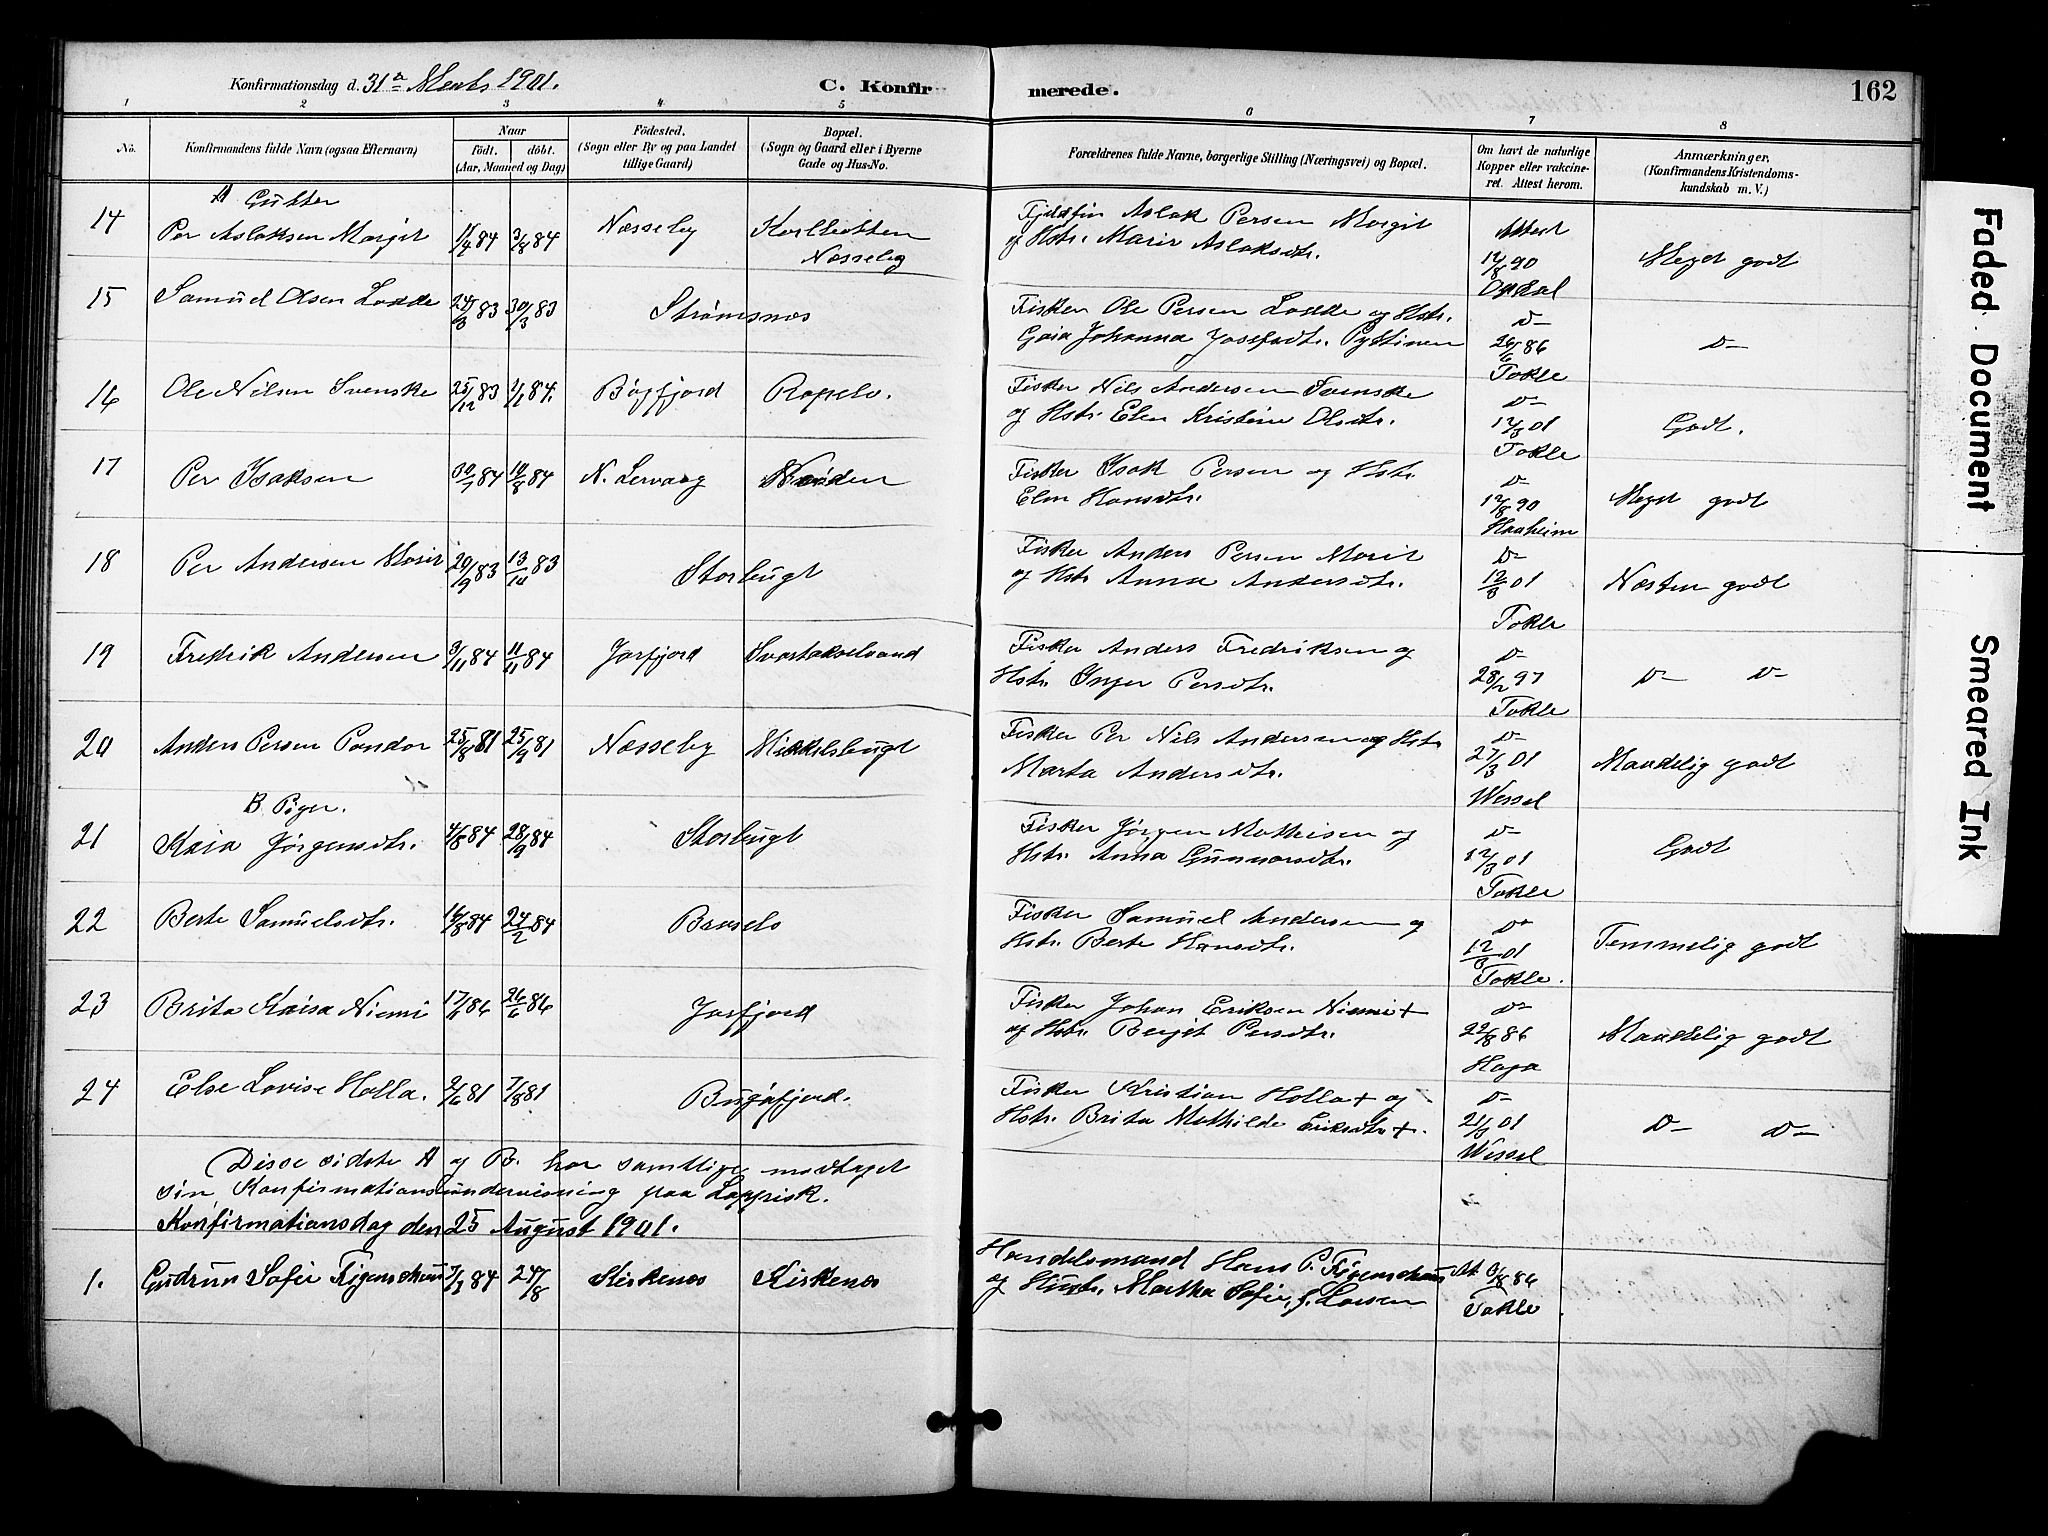 Konfirmationsdag d. 31te Marts 1901.
C. Konfirmerede.
162
1 2 3 4 5 6 7 8
No.
Konfirmandens fulde Navn (ogsaa Efternavn)
Naar
födt. döbt.
(Aar, Maaned og Dag)
Födested.
(Sogn eller By og paa Landet
tillige Gaard)
Bopæl.
(Sogn og Gaard eller i Byerne
Gade og Hus-No.
Forældrenes fulde Navne, borgerlige Stilling (Næringsvei) og Bopæl.
Om havt de naturlige
Kopper eller vakcine-
ret. Attest herom.
Anmærkninger,
(Konfirmandens Kristendoms-
kundskab m. V.)
A Gutter
14 Per Aslaksen Margit 84 3/8 84 Næsseby Karlbotten
Næsseby
Fjeldfin Aslak Persen Margit
og Hstr. Marit Aslaksdtr.
Attest
12/8 90
Meget godt
15 Samuel Olsen Ladde 24/3 83 30/3 83 Strømsnes
Fisker Ole Persen Ladde og Hstr.
Johanna Josefsdtr.
D-
26/6 86
Tokle
D-
16 Ole Nilsen Svenske 25/12 83 1/1 84. Bøgfjord Ropelv.
Fisker Nils Andersen Svenske
og Hstr. Elen Kristine Olsdtr.
D-
12/3 01
Tokle
Godt.
17 Per Isaksen 30/7 84 10/8 84 N. Lervaag
Fisker Isak Persen og Hstr.
Elen Hansdtr.
D-
12/8 90
Haaheim
Meget godt
18 Per Andersen Marit 20/9 83 13/10 83 Storbugt
Fisker Anders Persen Marit
og Hstr. Anna Andersdtr.
D-
12/3 01
Tokle
Næsten godt
19 Fredrik Andersen 3/11 84 11/11 84 Jarfjord Svartakselvand
Fisker Anders Fredriksen og
Hstr. Inger Persdtr.
D-
28/2 97
Tokle
D- D-
20 Anders Persen Pandor 25/8 81 25/9 81 Næsseby Mikkelsbugt
Fisker Per Nils Andersen og Hstr
Marta Andersdtr.
D-
27/3 01
Wessel
Maadelig godt
B. Piger.
21 Kaia Jørgensdtr. 4/8 84 28/9 84 Storbugt
Fisker Jørgen Mathisen og
Hstr. Anna Gunnarsdtr.
D-
12/3 01
Tokle
Godt
22 Berte Samuelsdtr. 84 24/2 84
Fisker Samuel Andersen og
Hstr. Berte Hansdtr.
D-
12/3 01
Tokle.
Temmelig godt
23 Brita Kaisa Niemi 86 26/6 86 Jarfjord
Fisker Johan Eriksen Niemi +
og Hstr. Berjit Persdtr.
D-
22/8 86
Haga
Maadelig godt
24 Else Lovise Holla. 2/6 81 7/8 81 Bugøfjord.
Fisker Kristian Holla + og
Hstr. Brita Mathilde Eriksdtr +.
D-
21/3 01
Wessel
D- D-
Disse sidste A og B. har samtlige modtaget
sin Konfirmationsundervisning paa Lappisk.
Konfirmationsdag den 25 August 1901.
1. Gudrun Sofie Figenschau 84 24/8 Kirkenes Kirkenes
Handelsmand Hans P. Figenschau
og Hustr. Martha Sofie, f. Larsen
At. 86
Tokle
Faded Document
Smeared Ink